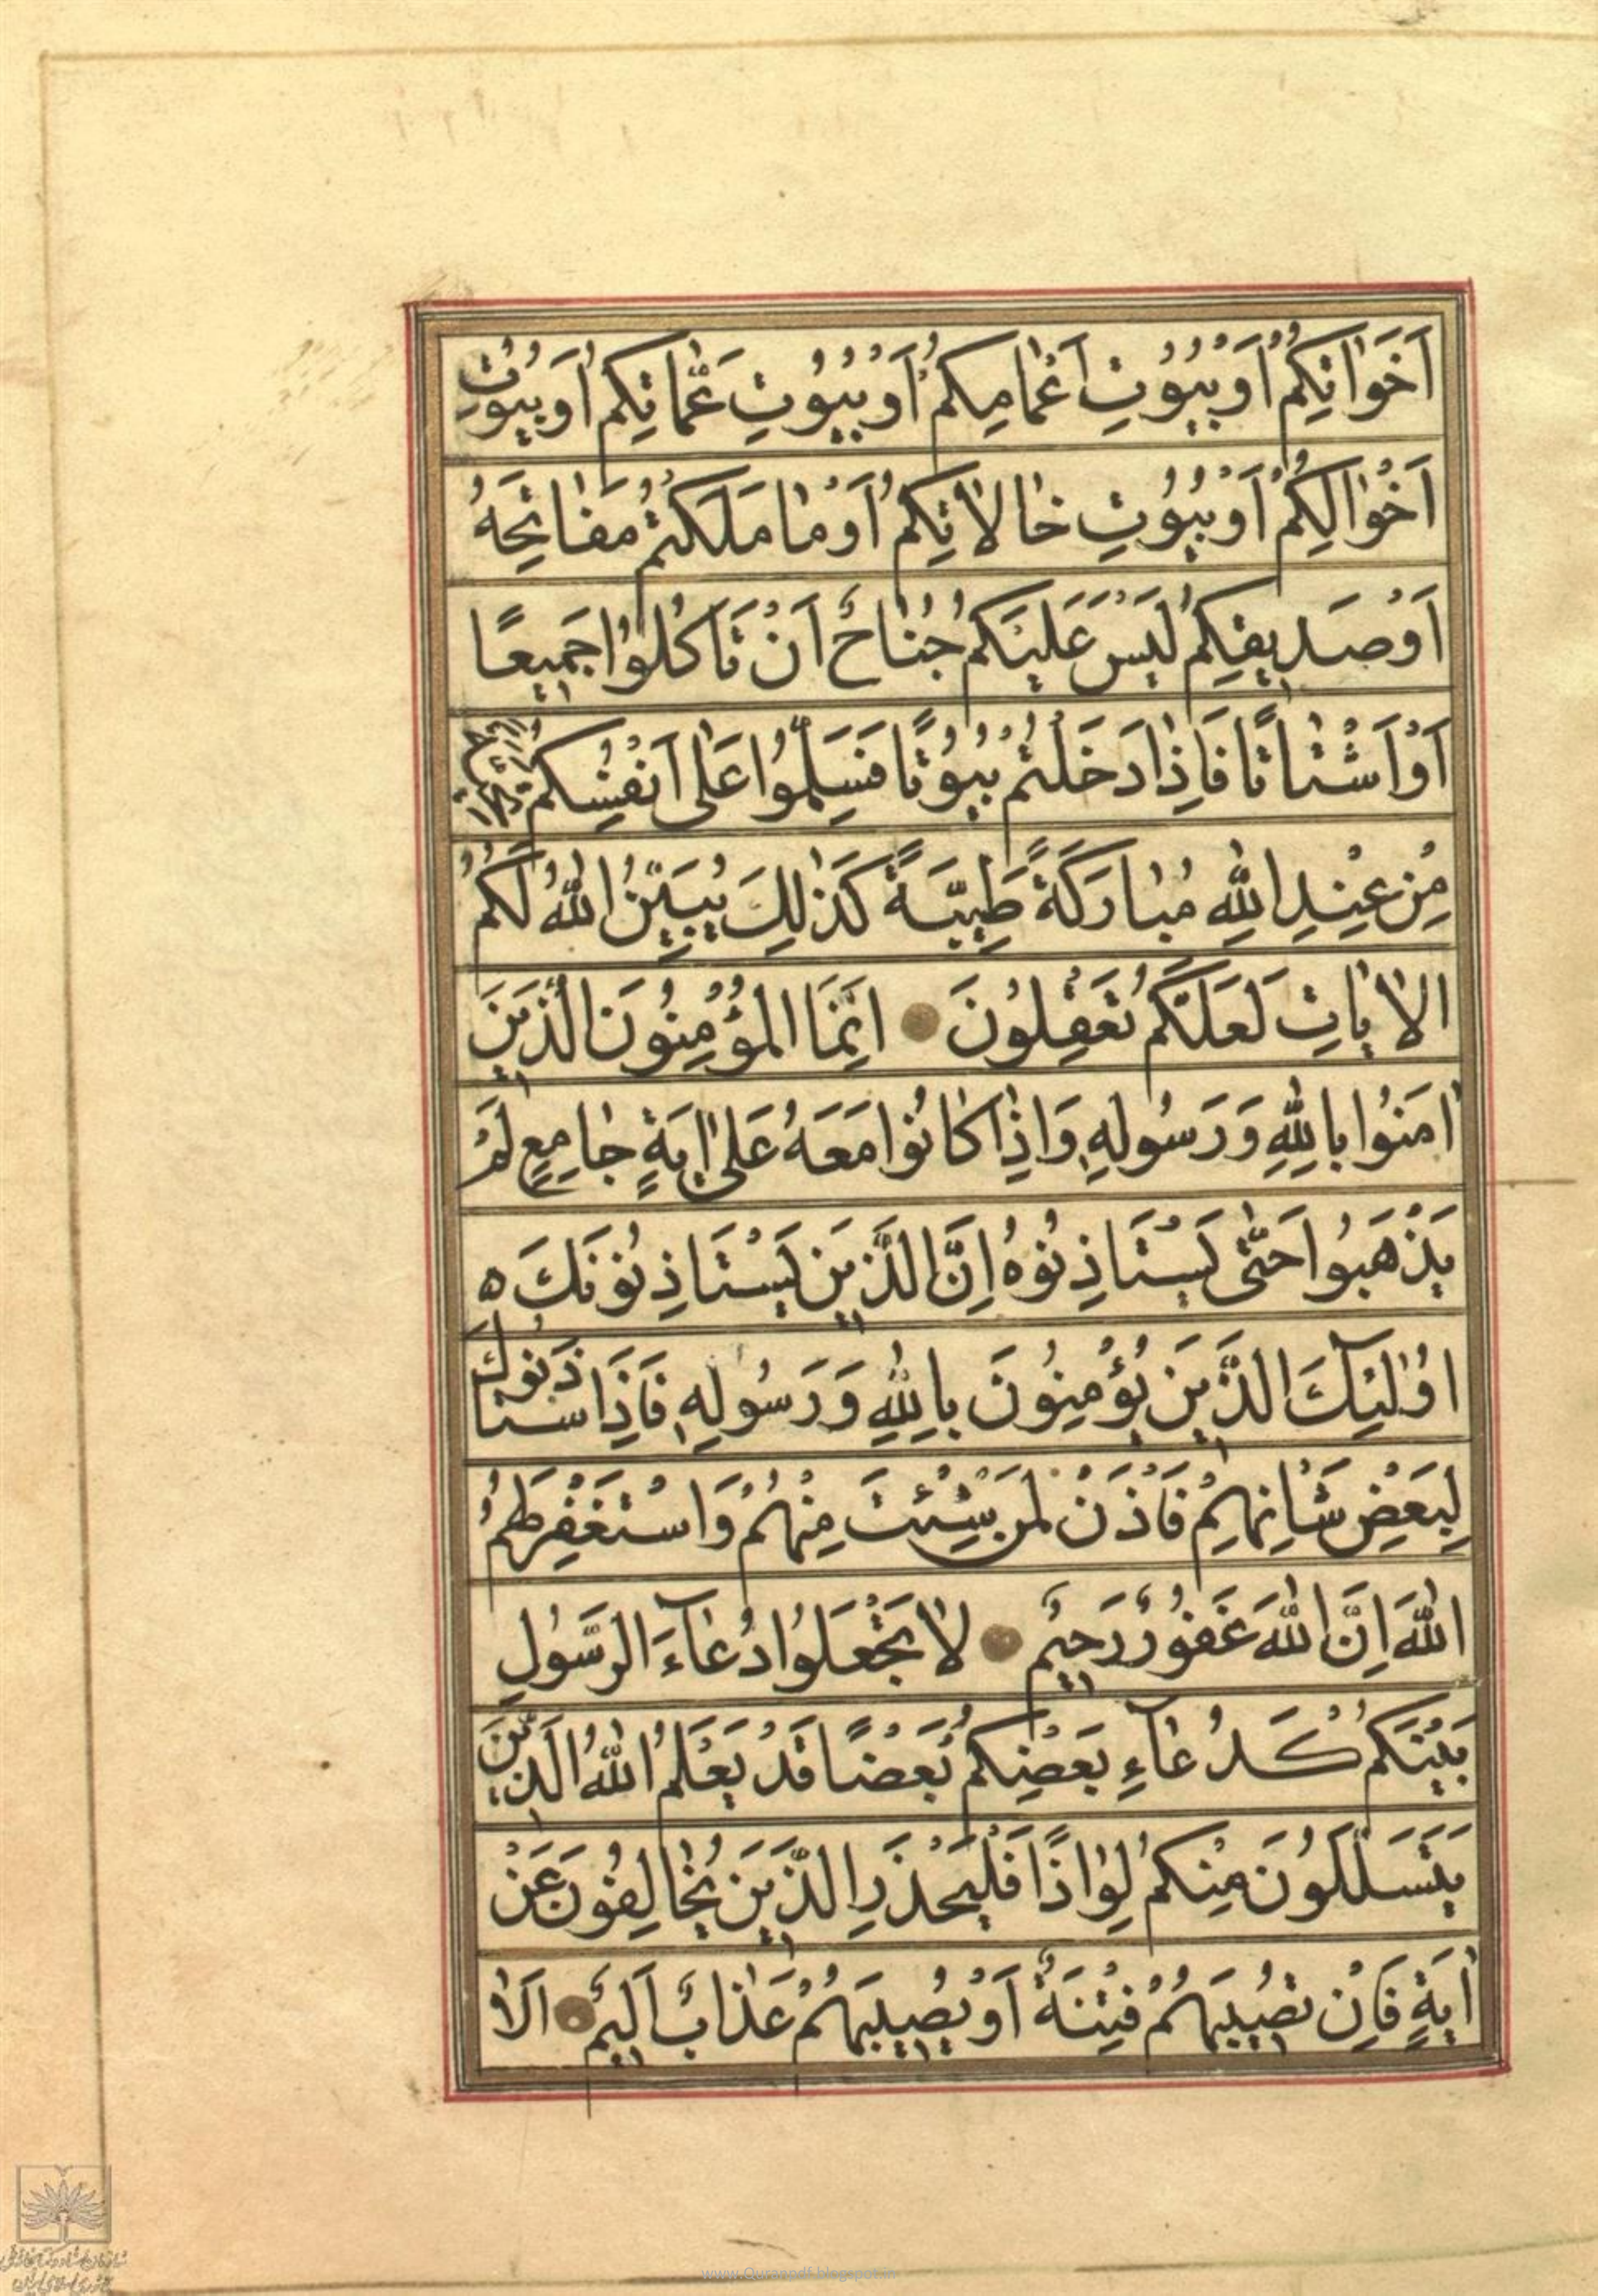 اَخَوٰاتِكُمْ اَوْ بُيُوتِ اَعْمٰامِكُمْ اَوْ بُيُوتِ عَمّٰاتِكُمْ اَوْ بُيُوتِ
اَخْوٰالِكُمْ اَوْ بُيُوتِ خٰالاٰتِكُمْ اَوْ مٰا مَلَكْتُمْ مَفٰاتِحَهُ
اَوْ صَديقِكُمْ لَيْسَ عَلَيْكُمْ جُنٰاحٌ اَنْ تَاكُلُوا جَميعًا
اَوْ اَشْتٰاتًا فَاِذٰا دَخَلْتُمْ بُيُوتًا فَسَلِّمُوا عَلٰى اَنْفُسِكُمْ
مِنْ عِنْدِ اللّٰهِ مُبٰارَكَةً طَيِّبَةً كَذٰلِكَ يُبَيِّنُ اللّٰهُ لَكُمُ
الاٰيٰاتِ لَعَلَّكُمْ تَعْقِلُونَ اِنَّمَا الْمُؤْمِنُونَ الَّذينَ
اٰمَنُوا بِاللّٰهِ وَرَسُولِهِ وَاِذٰا كٰانُوا مَعَهُ عَلٰى اٰيَةٍ جٰامِعٍ لَمْ
يَذْهَبُوا حَتّٰى يَسْتَاذِنُوهُ اِنَّ الَّذينَ يَسْتَاذِنُونَكَ ه
اُولٰئِكَ الَّذينَ يُؤْمِنُونَ بِاللّٰهِ وَرَسُولِهِ فَاِذَا اسْتَاذَنُوكَ
لِبَعْضِ شَانِهِمْ فَاْذَنْ لِمَنْ شِئْتَ مِنْهُمْ وَاسْتَغْفِرْ لَهُمُ
اللّٰهَ اِنَّ اللّٰهَ غَفُورٌ رَحيمٌ لاٰ تَجْعَلُوا دُعٰاءَ الرَّسُولِ
بَيْنَكُمْ كَدُعٰاءِ بَعْضِكُمْ بَعْضًا قَدْ يَعْلَمُ اللّٰهُ الَّذينَ
يَتَسَلَّلُونَ مِنْكُمْ لِوٰاذًا فَلْيَحْذَرِ الَّذينَ يُخٰالِفُونَ عَنْ
اٰيَةٍ فَاِنْ تُصيبَهُمْ فِتْنَةٌ اَوْ يُصيبَهُمْ عَذٰابٌ اَليمٌ اَلاٰ
www.Quranpdf.blogspot.in